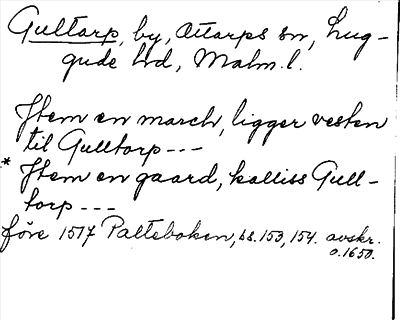 Gultarp, by, Ottarps sn, Lug-
gude hd, Malm. l.
Jtem en march, ligger vesten
til Gulltorp ---
* Jtem en gaard, kalliss Gull-
torp ---
före 1517 Palteboken, ss. 153, 154. avskr.
o. 1650.